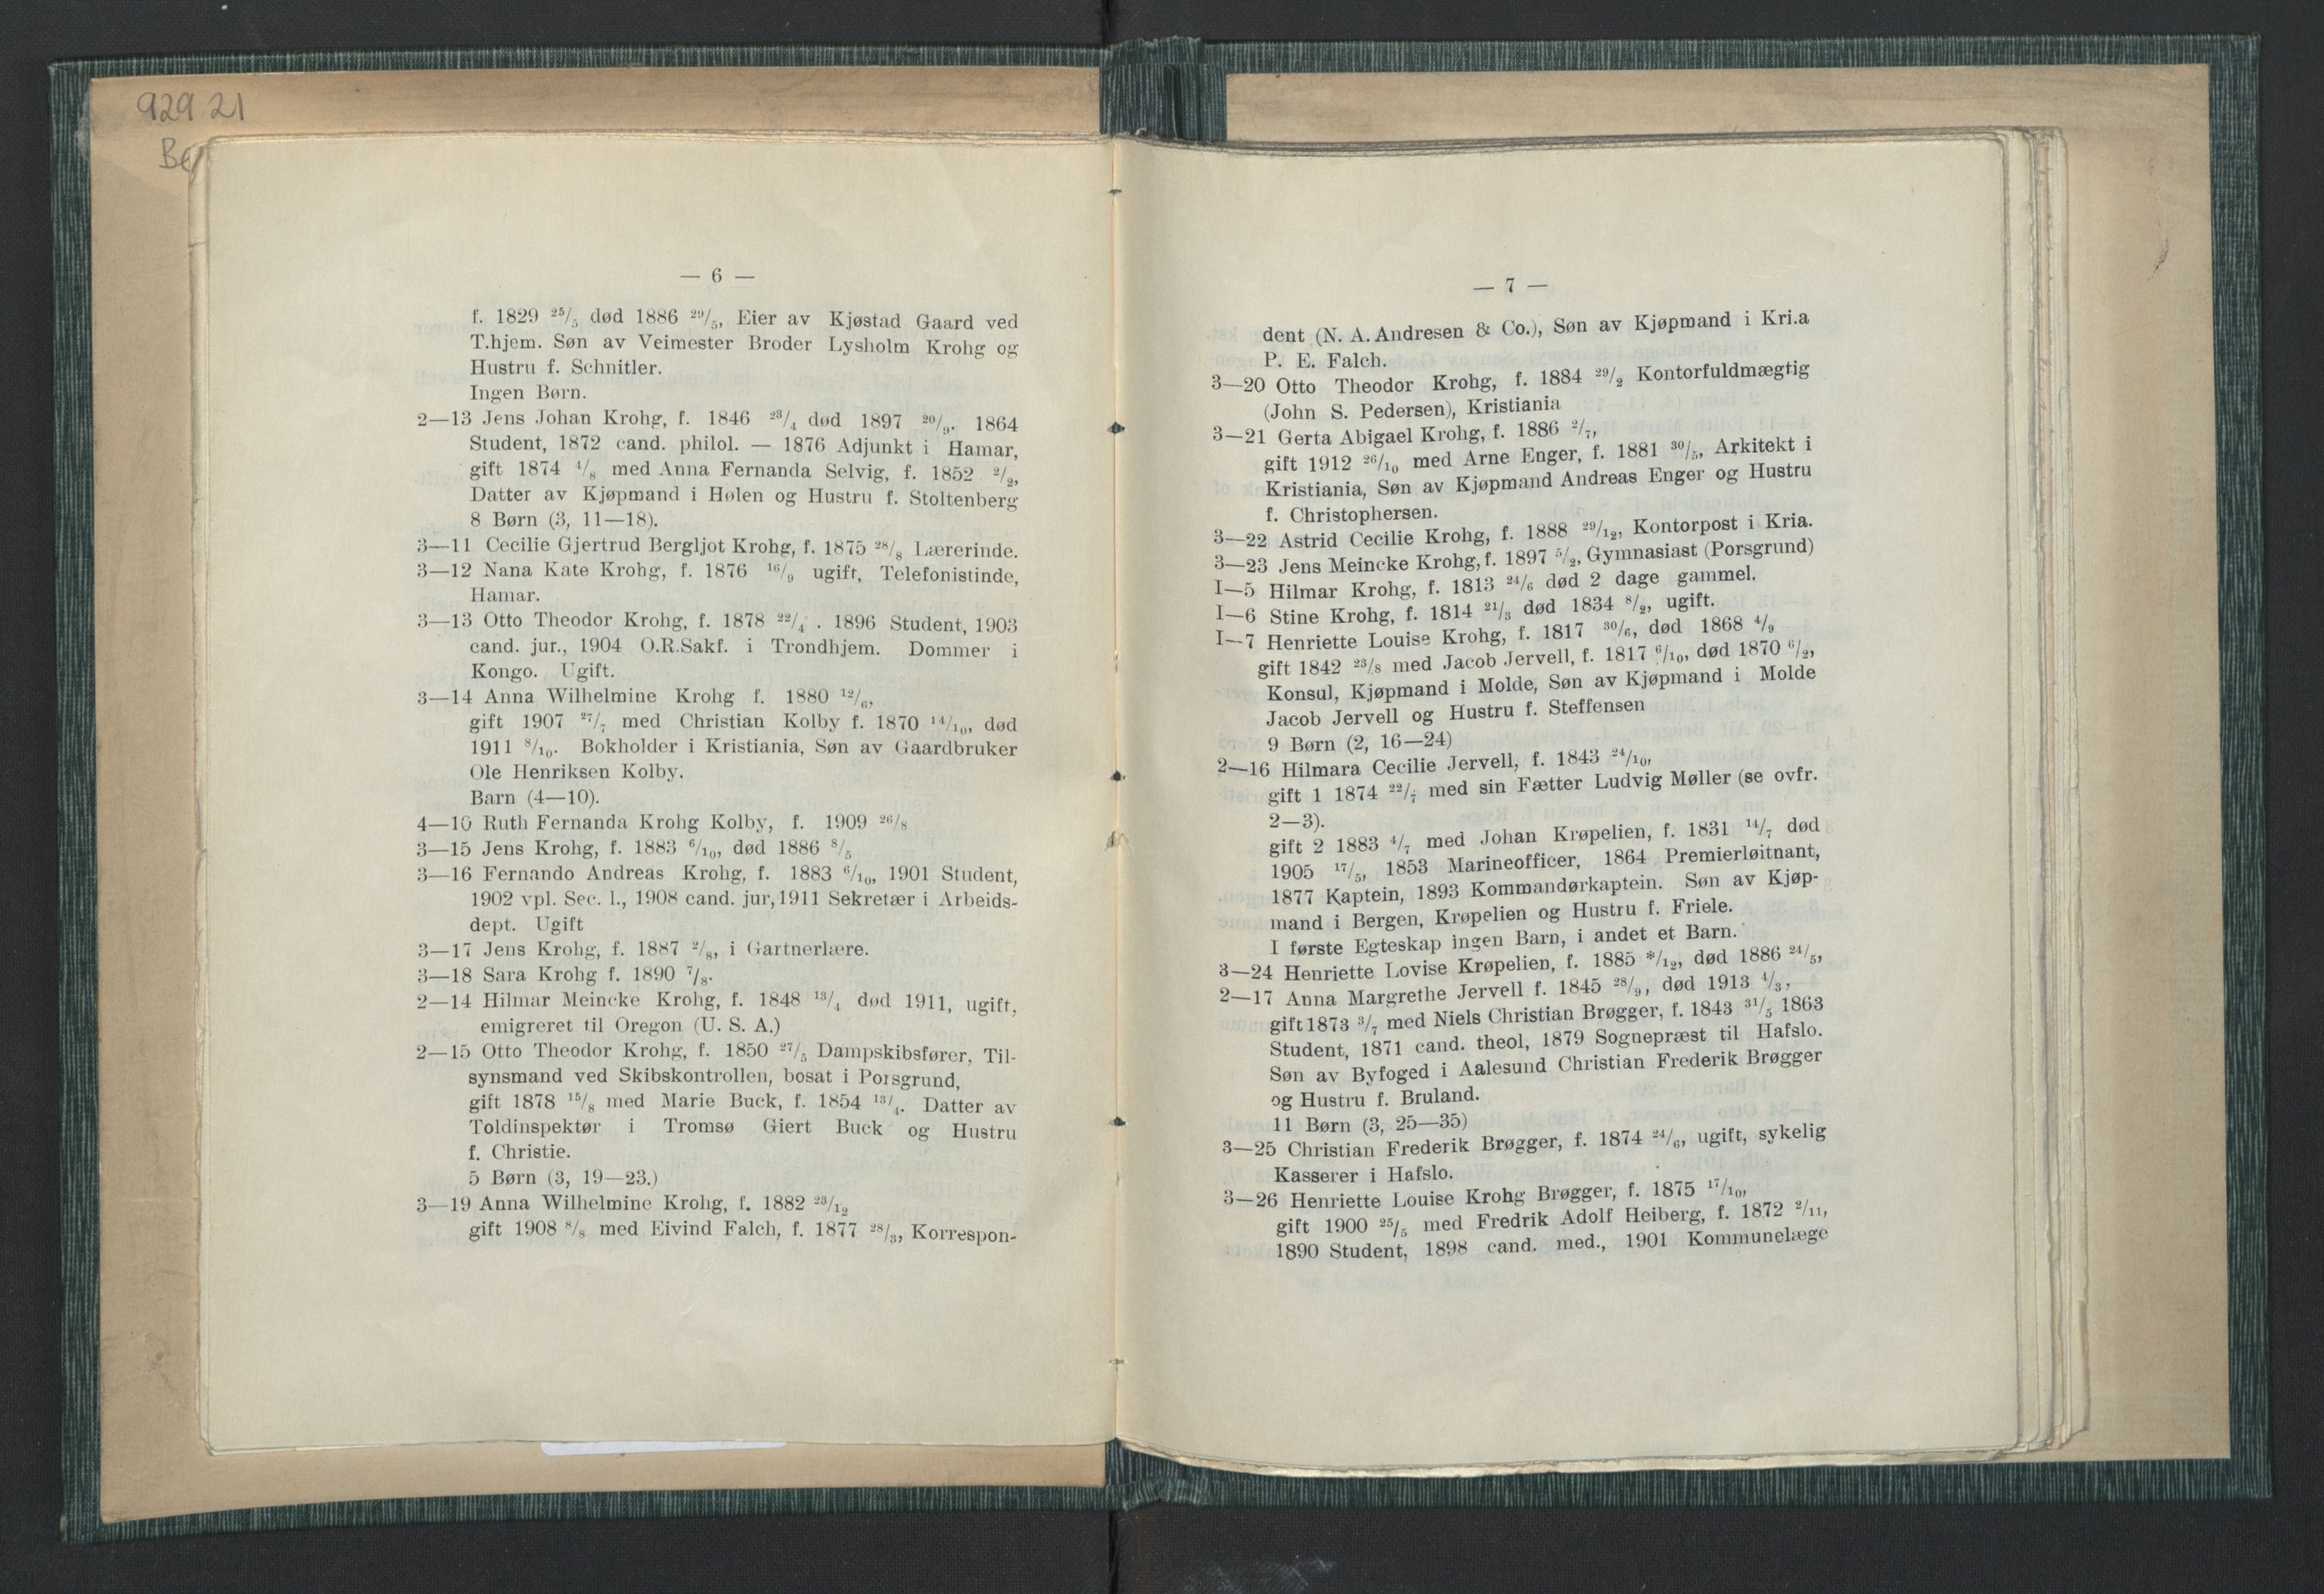 929 21
— 6 —
f. 1829 25/5 død 1886 29/5, Eier av Kjøstad Gaard ved
T.hjem. Søn av Veimester Broder Lysholm Krohg og
Hustru f. Schnitler.
Ingen Børn.
2—13 Jens Johan Krohg, f. 1846 23/4 død 1897 20/9. 1864
Student, 1872 cand. philol. — 1876 Adjunkt i Hamar,
gift 1874 4/8 med Anna Fernanda Selvig, f. 1852 2/2,
Datter av Kjøpmand i Hølen og Hustru f. Stoltenberg
8 Børn (3, 11—18).
3—11 Cecilie Gjertrud Bergljot Krohg, f. 1875 28/8 Lærerinde.
3—12 Nana Kate Krohg, f. 1876 16/9 ugift, Telefonistinde,
Hamar.
3—13 Otto Theodor Krohg, f. 1878 22/4 . 1896 Student, 1903
cand. jur., 1904 O.R.Sakf. i Trondhjem. Dommer i
Kongo. Ugift.
3—14 Anna Wilhelmine Krohg f. 1880 12/6,
gift 1907 27/7 med Christian Kolby f. 1870 14/10, død
1911 8/10. Bokholder i Kristiania, Søn av Gaardbruker
Ole Henriksen Kolby.
Barn (4—10).
4—10 Ruth Fernanda Krohg Kolby, f. 1909 26/8
3—15 Jens Krohg, f. 1883 6/10, død 1886 8/5
3—16 Fernando Andreas Krohg, f. 1883 6/10, 1901 Student,
1902 vpl. Sec. l., 1908 cand. jur, 1911 Sekretær i Arbeids-
dept. Ugift
3—17 Jens Krohg, f. 1887 2/8, i Gartnerlære.
3—18 Sara Krohg f. 1890 7/8.
2—14 Hilmar Meincke Krohg, f. 1848 13/4 død 1911, ugift,
emigreret til Oregon (U. S. A.)
2—15 Otto Theodor Krohg, f. 1850 27/5 Dampskibsfører, Til-
synsmand ved Skibskontrollen, bosat i Porsgrund,
gift 1878 15/8 med Marie Buck, f. 1854 13/4. Datter av
Toldinspektør i Tromsø Giert Buck og Hustru
f. Christie.
5 Børn (3, 19—23.)
3—19 Anna Wilhelmine Krohg, f. 1882 23/12
gift 1908 8/8 med Eivind Falch, f. 1877 28/3, Korrespon-
— 7 —
dent (N. A. Andresen & Co.), Søn av Kjøpmand i Kri.a
P. E. Falch.
3—20 Otto Theodor Krohg, f. 1884 29/2 Kontorfuldmægtig
(John S. Pedersen), Kristiania
3—21 Gerta Abigael Krohg, f. 1886 2/7,
gift 1912 26/10 med Arne Enger, f. 1881 30/5, Arkitekt i
Kristiania, Søn av Kjøpmand Andreas Enger og Hustru
f. Christophersen.
3—22 Astrid Cecilie Krohg, f. 1888 29/12, Kontorpost i Kria.
3—23 Jens Meincke Krohg, f. 1897 5/2, Gymnasiast (Porsgrund)
I—5 Hilmar Krohg, f. 1813 24/6 død 2 dage gammel.
I—6 Stine Krohg, f. 1814 21/3 død 1834 8/2, ugift.
I—7 Henriette Louise Krohg, f. 1817 30/6, død 1868 4/9
gift 1842 23/8 med Jacob Jervell, f. 1817 6/10, død 1870 6/2,
Konsul, Kjøpmand i Molde, Søn av Kjøpmand i Molde
Jacob Jervell og Hustru f. Steffensen
9 Børn (2, 16—24)
2—16 Hilmara Cecilie Jervell, f. 1843 24/10,
gift 1 1874 22/7 med sin Fætter Ludvig Møller (se ovfr.
2—3).
gift 2 1883 4/7 med Johan Krøpelien, f. 1831 14/7 død
1905 17/5, 1853 Marineofficer, 1864 Premierløitnant,
1877 Kaptein, 1893 Kommandørkaptein. Søn av Kjøp-
mand i Bergen, Krøpelien og Hustru f. Friele.
I første Egteskap ingen Barn, i andet et Barn.
3—24 Henriette Lovise Krøpelien, f. 1885 */12, død 1886 24/5,
2—17 Anna Margrethe Jervell f. 1845 28/9, død 1913 4/3,
gift 1873 3/7 med Niels Christian Brøgger, f. 1843 31/5 1863
Student, 1871 cand. theol, 1879 Sognepræst til Hafslo.
Søn av Byfoged i Aalesund Christian Frederik Brøgger
og Hustru f. Bruland.
11 Børn (3, 25—35)
3—25 Christian Frederik Brøgger, f. 1874 24/6, ugift, sykelig
Kasserer i Hafslo.
3—26 Henriette Louise Krohg Brøgger, f. 1875 17/10,
gift 1900 25/5 med Fredrik Adolf Heiberg, f. 1872 2/11,
1890 Student, 1898 cand. med., 1901 Kommunelæge